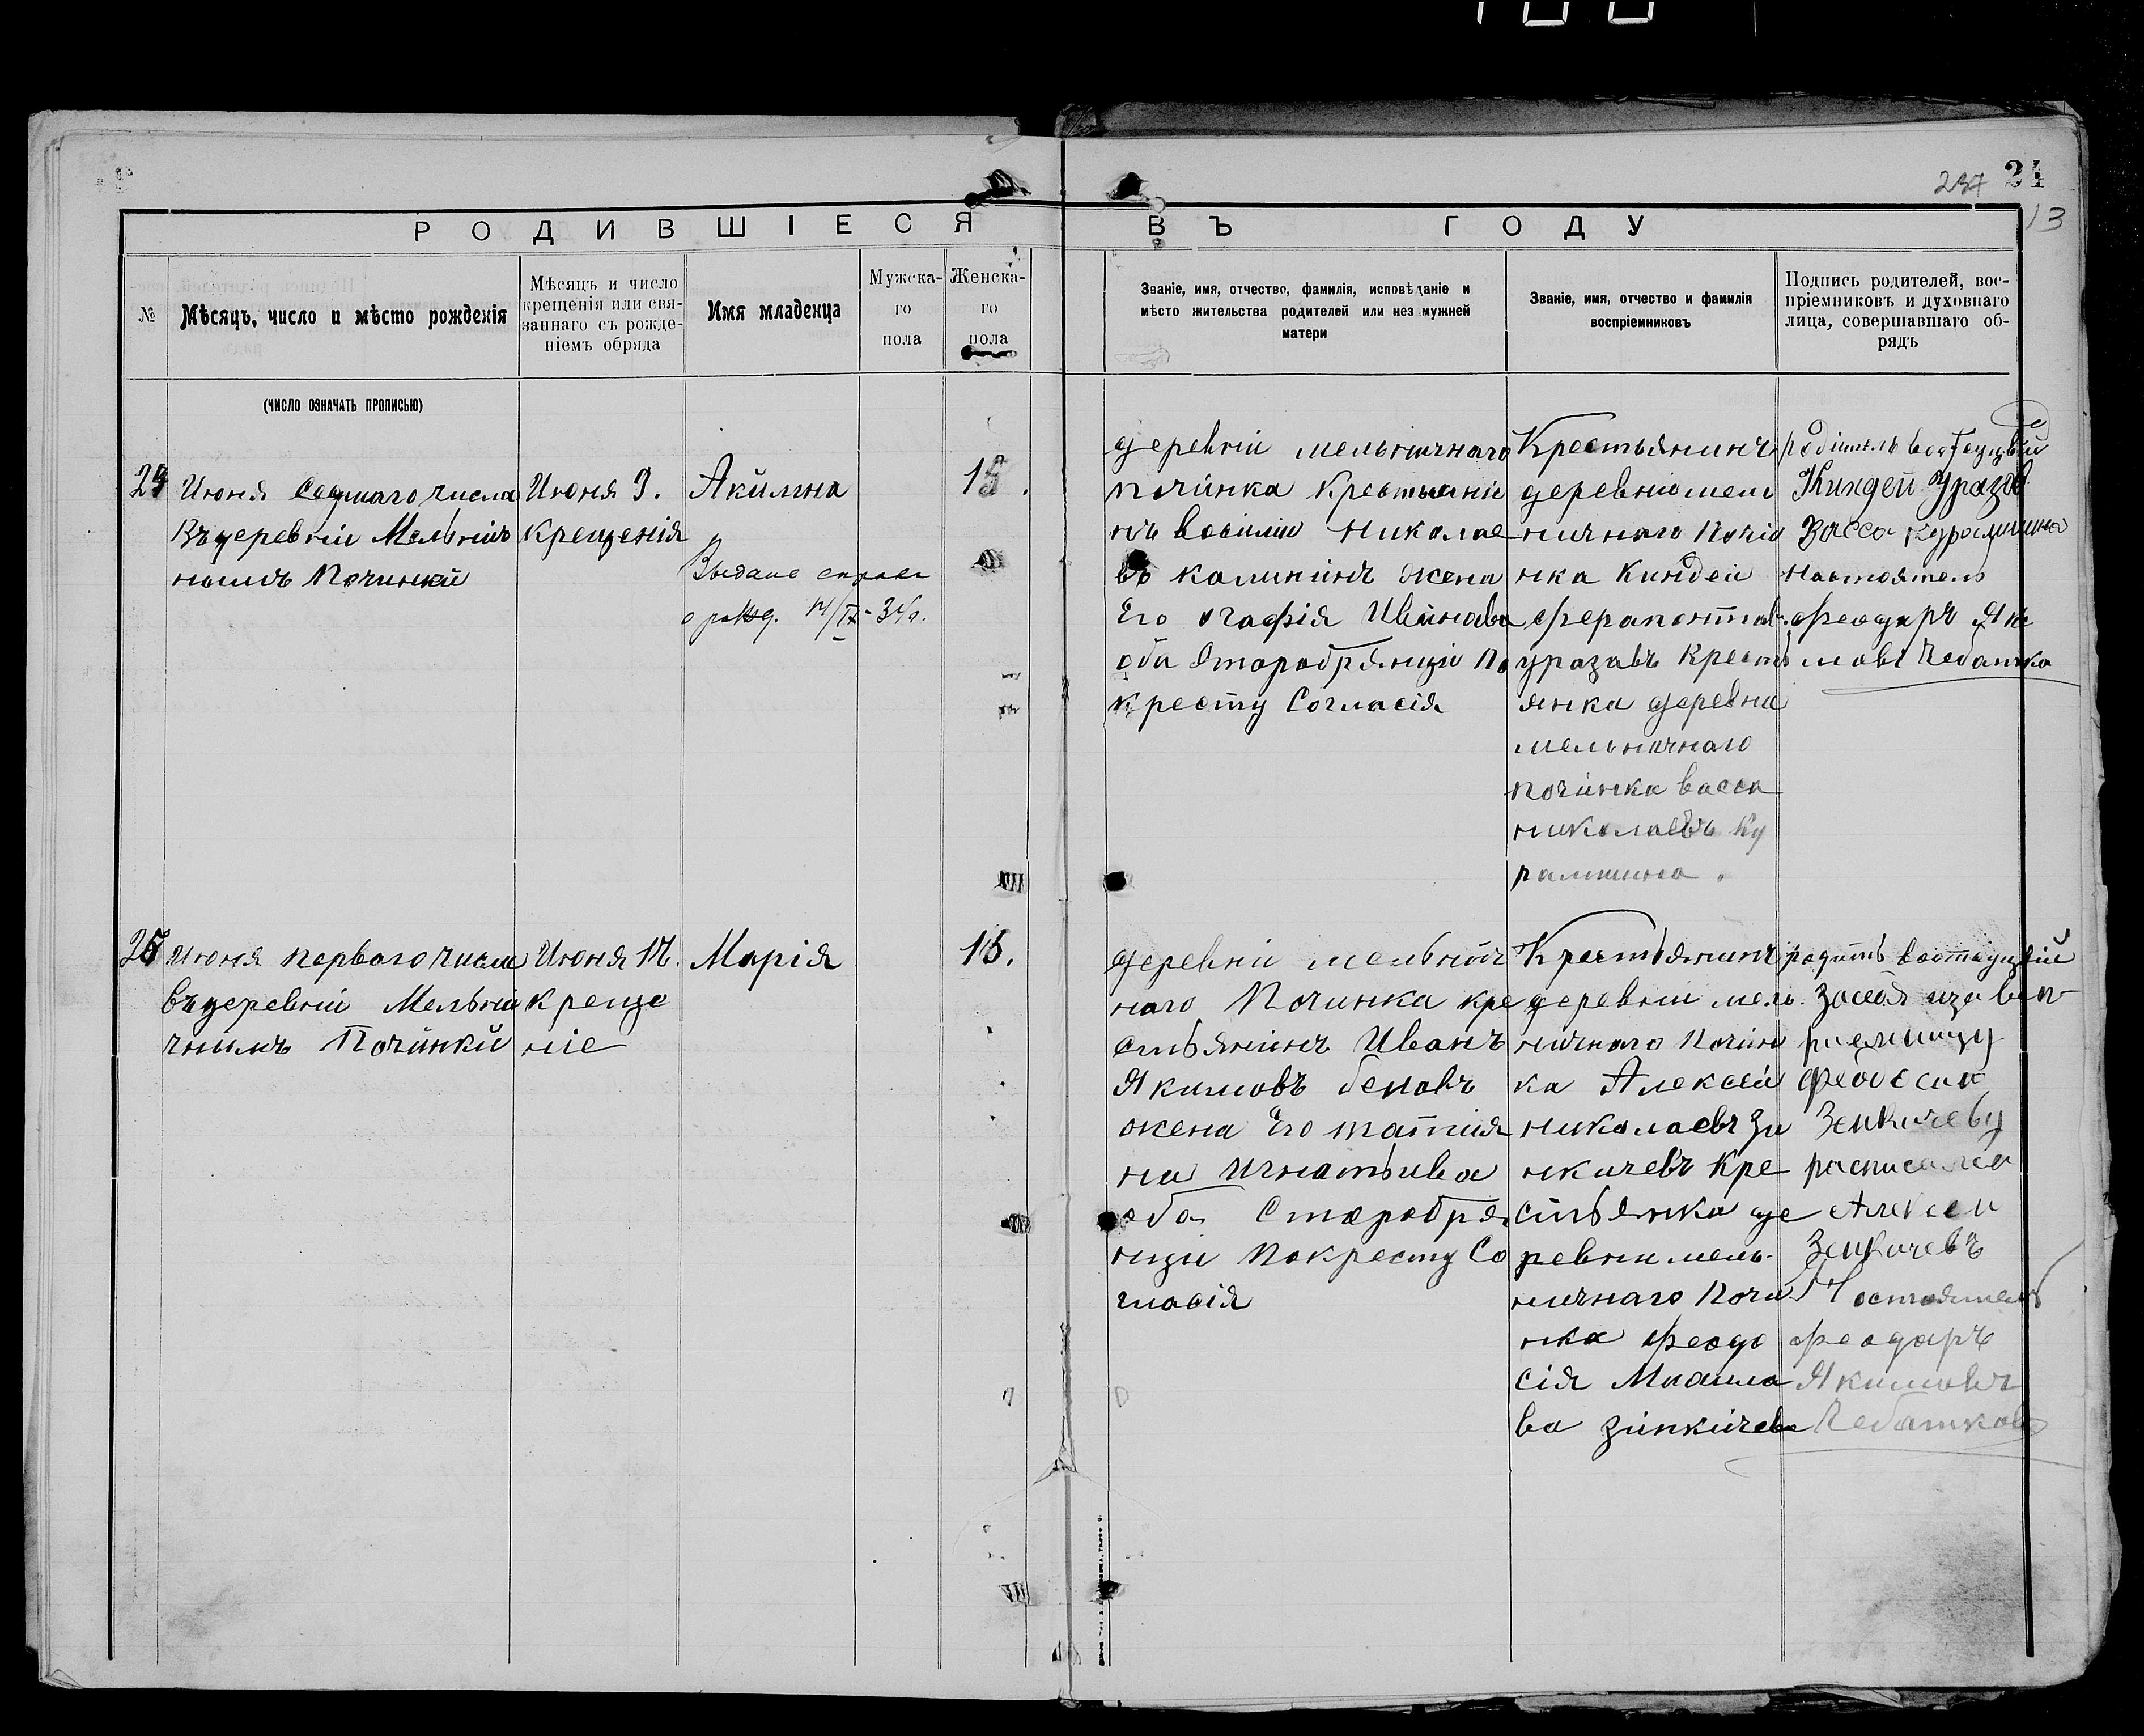 237 24
13
РОДИВШІЕСЯ ВЪ ГОДУ
№
Мѣсяцъ, число и мѣсто рожденія
Мѣсяцъ и число
крещенія или свя-
заннаго съ рожде-
ніемъ обряда
Имя младенца
Мужска-
го
пола
Женска-
го
пола
Званіе, имя, отчество, фамилія, исповѣданіе и
мѣсто жительства родителей или незамужней
матери
Званіе, имя, отчество и фамилія
воспріемниковъ
Подпись родителей, вос-
пріемниковъ и духовнаго
лица, совершавшаго об-
рядъ
(ЧИСЛО ОЗНАЧАТЬ ПРОПИСЬЮ)
24
Июня Седмаго числа
Въ деревніи Мельнич
нымъ Починкй
Июня 9.
Крещенія
Акилина
Выдано
о рожд. IX-34г.
15.
деревніи мельничнаго
починка Крестьяніи
нъ Василіи Николае
въ калининъ жена
Его огафія Иванова
оба Старобрянцы по
кресту Согласія
Крестьянинъ
деревніи мел
ничнаго Почин
ка Киндеи
ферапонтов
уразавъ Кресть
янка деревни
мельничнаго
починка васса
николаевъ Ку
рамшина.
родитель
Киндей Уразов
Васса Курамшина
Настоятель
Феодаръ Яки
мовъ Чебатко
25
Июня первого числа
въ деревніи Мельни
чнымъ Починкй
Июня 14.
креще
ніе
Марія
16.
деревніи мельнич
наго Починка кре
стьянинъ Иванъ
Якимовъ беловъ
жена Его татия
на Игнатьива
оба Старобря
нцы покресту Со
гласія
Крестьянинъ
деревніи мель
ничнаго Почин
ка Алексеи
николаевъ Зи
нкичевъ Кре
стьянка де
ревни мель-
ничнаго Почи
нка Феодо
сія
ва зинкичева
Феодосию
Зенкичеву
расписался
Алексеи
Зенкичевъ
Настоятель
Феодаръ
Якимовъ
Чебатков